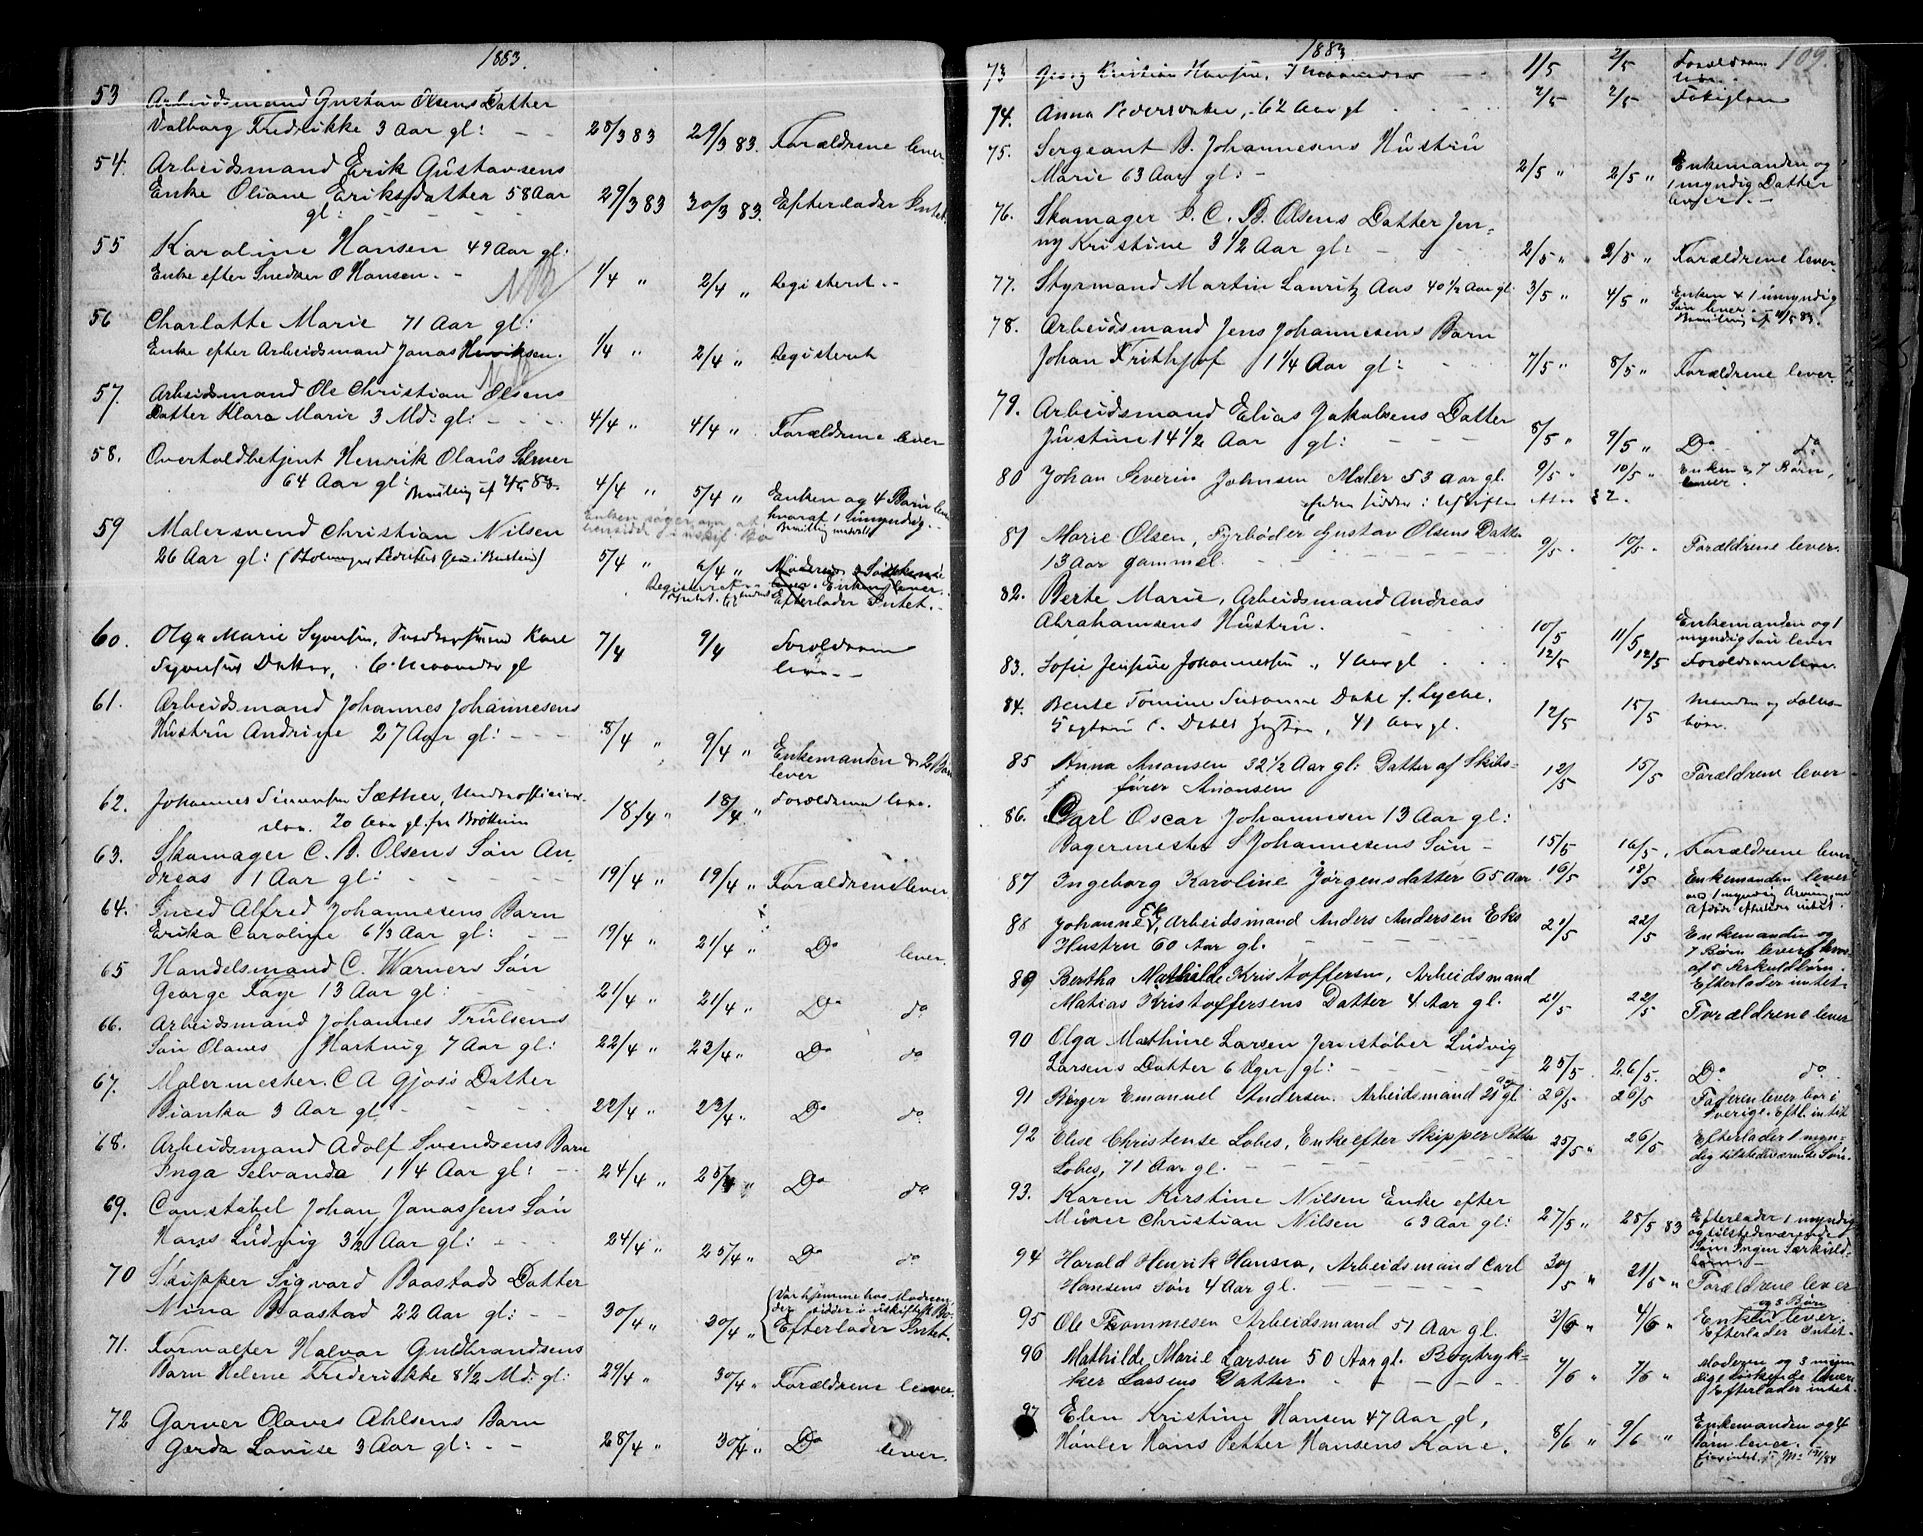 1883.
53 Arbeidsmand Gustav Olsens Datter
Valborg Fredrikke 3 Aar gl: 28/3 83 29/3 83. Forældrene lever
54. Arbeidsmand Erik Gustavsens
Enke Oliane Eriksdatter 58 Aar 29/3 83 30/3 83. Efterlader Intet.
gl:
55 Karoline Hansen 49 Aar gl:
Enke efter Snedker O Hansen. 1/4 " 2/4 " Registeret.
NB
56 Charlotte Marie 71 Aar gl:
Enke efter Arbeidsmand Jonas Henriksen. 1/4 " 2/4 " Registeret
NB
57. Arbeidsmand Ole Christian Olsens
Datter Klara Marie 3 Md: gl: 4/4 " 4/4 " Forældrene lever
58. Overtoldbetjent Henrik Olaus
64 Aar gl: 4/4 " 5/4 " Enken og 4 Børn lever
hvoraf 1 umyndig.
59 Malersvend Christian Nilsen
26 Aar gl: 5/4 " 6/4 "
Efterlader Intet.
60. Olga Marie Syversen, Karl
Syversens Datter, 6 Maaneder gl 7/4 9/4 Forældrene
lever
61. Arbeidsmand Johannes Johannesens
Hustru Andrine 27 Aar gl: 8/4 " 9/4 " Enkemanden & 2 Børn
lever
62. Johannes Simensen Sæther, Underofficier-
elev. 20 Aar gl. fra Brøttum 18/4 " 18/4 " Forældrene lever.
63. Skomager C. B. Olsens Søn An-
dreas 1 Aar gl: 19/4 " 19/4 " Forældrene lever
64. Smed Alfred Johannesens Barn
Erika Caroline 6 1/3 Aar gl: 19/4 " 21/4 " Do lever.
65 Handelsmand C. Wærners Søn
George Faye 13 Aar gl: 21/4 " 21/4 " Do do
66. Arbeidsmand Johannes Trulsens
Søn Olaves Hartvig 7 Aar gl: 22/4 " 23/4 " Do do
67. Malermester C A Gjøss Datter
Bianka 3 Aar gl 22/4 " 23/4 " Do do
68. Arbeidsmand Adolf Svendsens Barn
Inga Selvanda 1 1/4 Aar gl: 24/4 " 25/4 " Do do
69. Constabel Johan Jonassens Søn
Hans Ludvig 3 1/2 Aar gl: 24/4 " 25/4 " Do do
70 Skipper Sigvard Baastads Datter
Nina Baastad 22 Aar gl: 30/4 " 30/4 " Var hjemme hos Moderen
der sidder i uskiftet Bo
Efterlader Intet.
71. Forvalter Halvor Guldbrandsens
Barn Helene Frederikke 8 1/2 Md: gl: 29/4 " 30/4 " Forældrene lever.
72 Garver Olaves Ahlsens Barn
Gerda Lovise 3 Aar gl: 28/4 " 30/4 " Do lever.
1883. 109.
73 Georg Kristian Hansen, 7 Maaneder 1/5 2/5 Forældrene
lever.
74. Anna Pedersdatter, 62 Aar gl 2/5 2/5 Fattiglem
75. Sergeant B. Johannesens Hustru
Marie 63 Aar gl: 2/5 " 2/5 " Enkemanden og
1 myndig Datter
lever.
76. Skomager P. C. B. Olsens Datter Jen-
ny Kristine 3 1/2 Aar gl: 2/5 " 2/5 " Forældrene lever.
77. Styrmand Martin Lauritz Aas 40 1/2 Aar gl 3/5 " 4/5 " Enken & 1 umyndig
Søn lever.
78. Arbeidsmand Jens Johannesens Barn
Johan Frithjof 1 1/4 Aar gl: 7/5 " 8/5 " Forældrene lever.
79. Arbeidsmand Elias Jakobsens Datter
Justine 14 1/2 Aar gl: 8/5 " 9/5 " Do do
80 Johan Severin Johnsen Maler 53 Aar gl. 9/5 " 10/5 " Enken & 7 Børn,
lever.
Enken sidder i Uskiftet
81 Marie Olsen, Fyrbøder Gustav Olsens Datter 9/5. 10/5. Forældrene lever.
13 Aar gammel.
82. Berte Marie, Arbeidsmand Andreas
Abrahamsens Hustru. 10/5 11/5 Enkemanden og 1
myndig Søn lever
83. Sofie Jensine Johannessen, 4 Aar gl 12/5 12/5 Forældrene lever.
84. Bente Tomine Susanne Dahl f. Lyche,
C. Dahls Hustru, 41 Aar gl. 12/5 15/5 Manden og Fælles-
børn.
85 Anna Anonsen 32 1/2 Aar gl: Datter af Skibs-
fører Anonsen 12/5 15/5 Forældrene lever
86. Carl Oscar Johannesen 13 Aar gl:
Bagermester S Johannesens Søn 15/5 16/5. Forældrene lever
87 Ingeborg Karoline Jørgensdatter 65 Aar 16/5 18/5 Enkemanden lever
88 Johanne Ek, Arbeidsmand Anders Andersen Eks
Hustru 60 Aar gl. 21/5 22/5 Enkemanden og
7 Børn lever hvor-
af 5 Særkuldbørn.
Efterlader intet
89 Bertha Mathilde Kristoffersen, Arbeidsmand
Matias Kristoffersens Datter 4 Aar gl. 21/5 22/5 Forældrene lever
90 Olga Mathine Larsen Jernstøber Ludvig
Larsens Datter 6 Uger gl: 25/5. 26/5. Do do
91 Birger Emanuel Andersen. Arbeidsmand 21 Aar gl. 26/5 26/5 Faderen lever bor i
Sverige. Eftl. intet
92 Elise Christense Lobes, Enke efter Skipper Petter
Lobes, 71 Aar gl. 25/5 " 26/5 Efterlader 1 myn-
dig tilstedeværende Søn.
93. Karen Kirstine Nilsen Enke efter
Murer Christian Nilsen 63 Aar gl: 27/5 " 28/5 83 Efterlader 1 myndig
og tilstedeværende
Søn. Ingen Særkuld-
børn.
94 Harald Henrik Hansen, Arbeidsmand Carl
Hansens Søn 4 Aar gl. 30/5 " 31/5 " Forældrene lever
95 Ole Thommesen Arbeidsmand 51 Aar gl. 3/6 " 4/6 " Enken og 3 Børn lever.
Efterlader Intet.
96 Mathilde Marie Larsen 50 Aar gl. Bogtryk-
ker Larsens Datter. 7/6 " 7/6 " Moderen og 3 myn
dige Søskende lever
Efterlader intet.
97 Elen Kristine Hansen 47 Aar gl,
Høvler Hans Petter Hansens Kone. 8/6 " 9/6 " Enkemanden og 4
Børn lever.